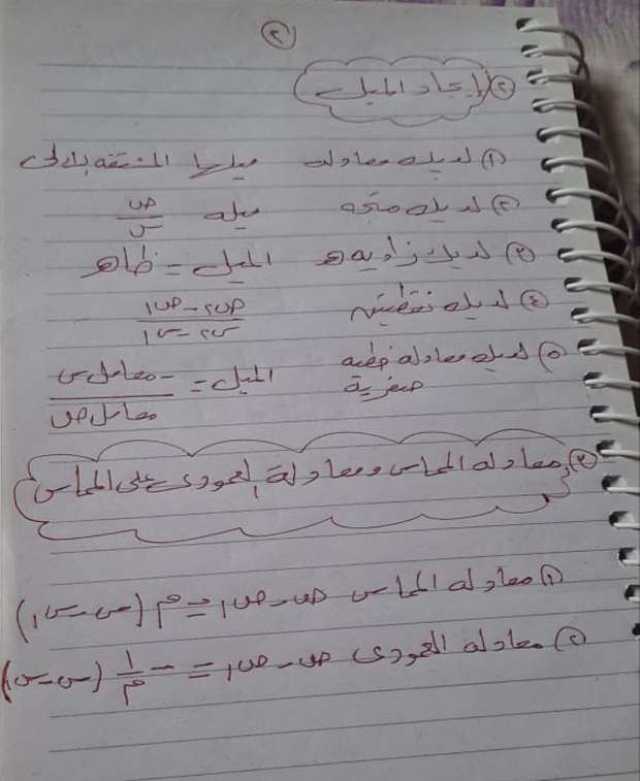 ٢
٢) إيجاد الميل
١) لديك معادلة ميلها المشتقه الاولى
٢) لديك متجه ميله ص/س
٣) لديك زاويه هـ الميل = ظاهـ
٤) لديك نقطتين ص٢-ص١/س٢-س١
٥) لديك معادلة خطيه صفرية الميل = -معامل س/معامل ص
٣) معادله المماس ومعادلة العمودى على المماس
١) معادله المماس ص-ص١ = م (س-س١)
٢) معادله العمودى ص-ص١ = -١/م (س-س)